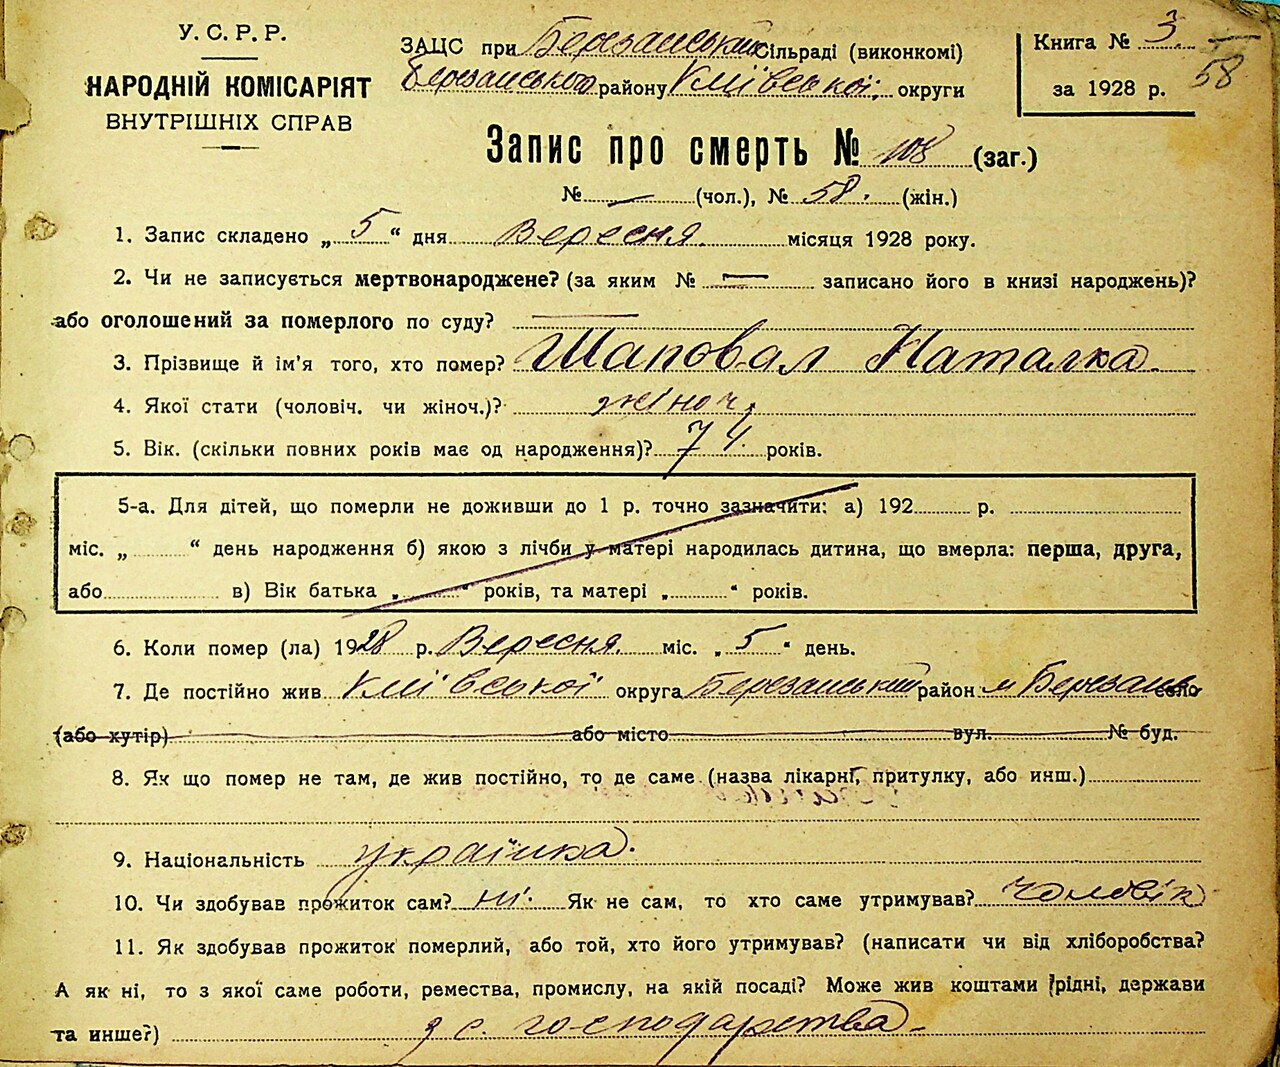 У. С. Р. Р.
НАРОДНІЙ КОМІСАРІЯТ
ВНУТРІШНІХ СПРАВ
ЗАЦС при Березанський Сільраді (виконкомі)
Березанського району Київської округи
Книга № 3.
58
за 1928 р.
Запис про смерть № 108 (заг.)
№ — (чол.), № 58. (жін.)
1. Запис складено „ 5 “ дня Вересня. місяця 1928 року.
2. Чи не записується мертвонароджене? (за яким № — записано його в книзі народжень)?
або оголошений за померлого по суду? —
3. Прізвище й ім'я того, хто помер? Шаповал Наталка
4. Якої стати (чоловіч. чи жіноч.)? жіноч.
5. Вік. (скільки повних років має од народження)? 74 років.
5-а. Для дітей, що померли не доживши до 1 р. точно зазначити: а) 192 р.
міс. „ “ день народження б) якою з лічби у матері народилась дитина, що вмерла: перша, друга,
або в) Вік батька „ “ років, та матері „ “ років.
6. Коли помер (ла) 1928 р. Вересня. міс. „ 5 “ день.
7. Де постійно жив Київської округа Березанський район м Березань село
(або хутір) або місто вул. № буд.
8. Як що помер не там, де жив постійно, то де саме (назва лікарні, притулку, або инш.)
9. Національність українка.
10. Чи здобував прожиток сам? ні. Як не сам, то хто саме утримував? Чоловік
11. Як здобував прожиток померлий, або той, хто його утримував? (написати чи від хліборобства?
А як ні, то з якої саме роботи, ремества, промислу, на якій посаді? Може жив коштами рідні, держави
та инше?) з с. господарства